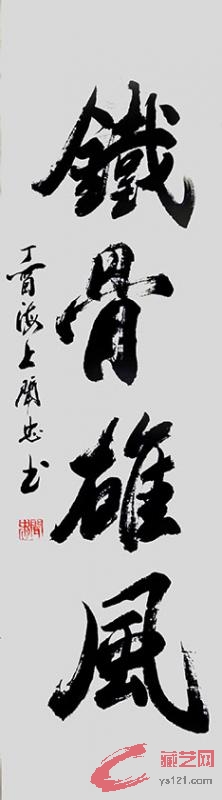 鐵骨雄風
丁酉海上開忠书
藏艺网
ys121.com